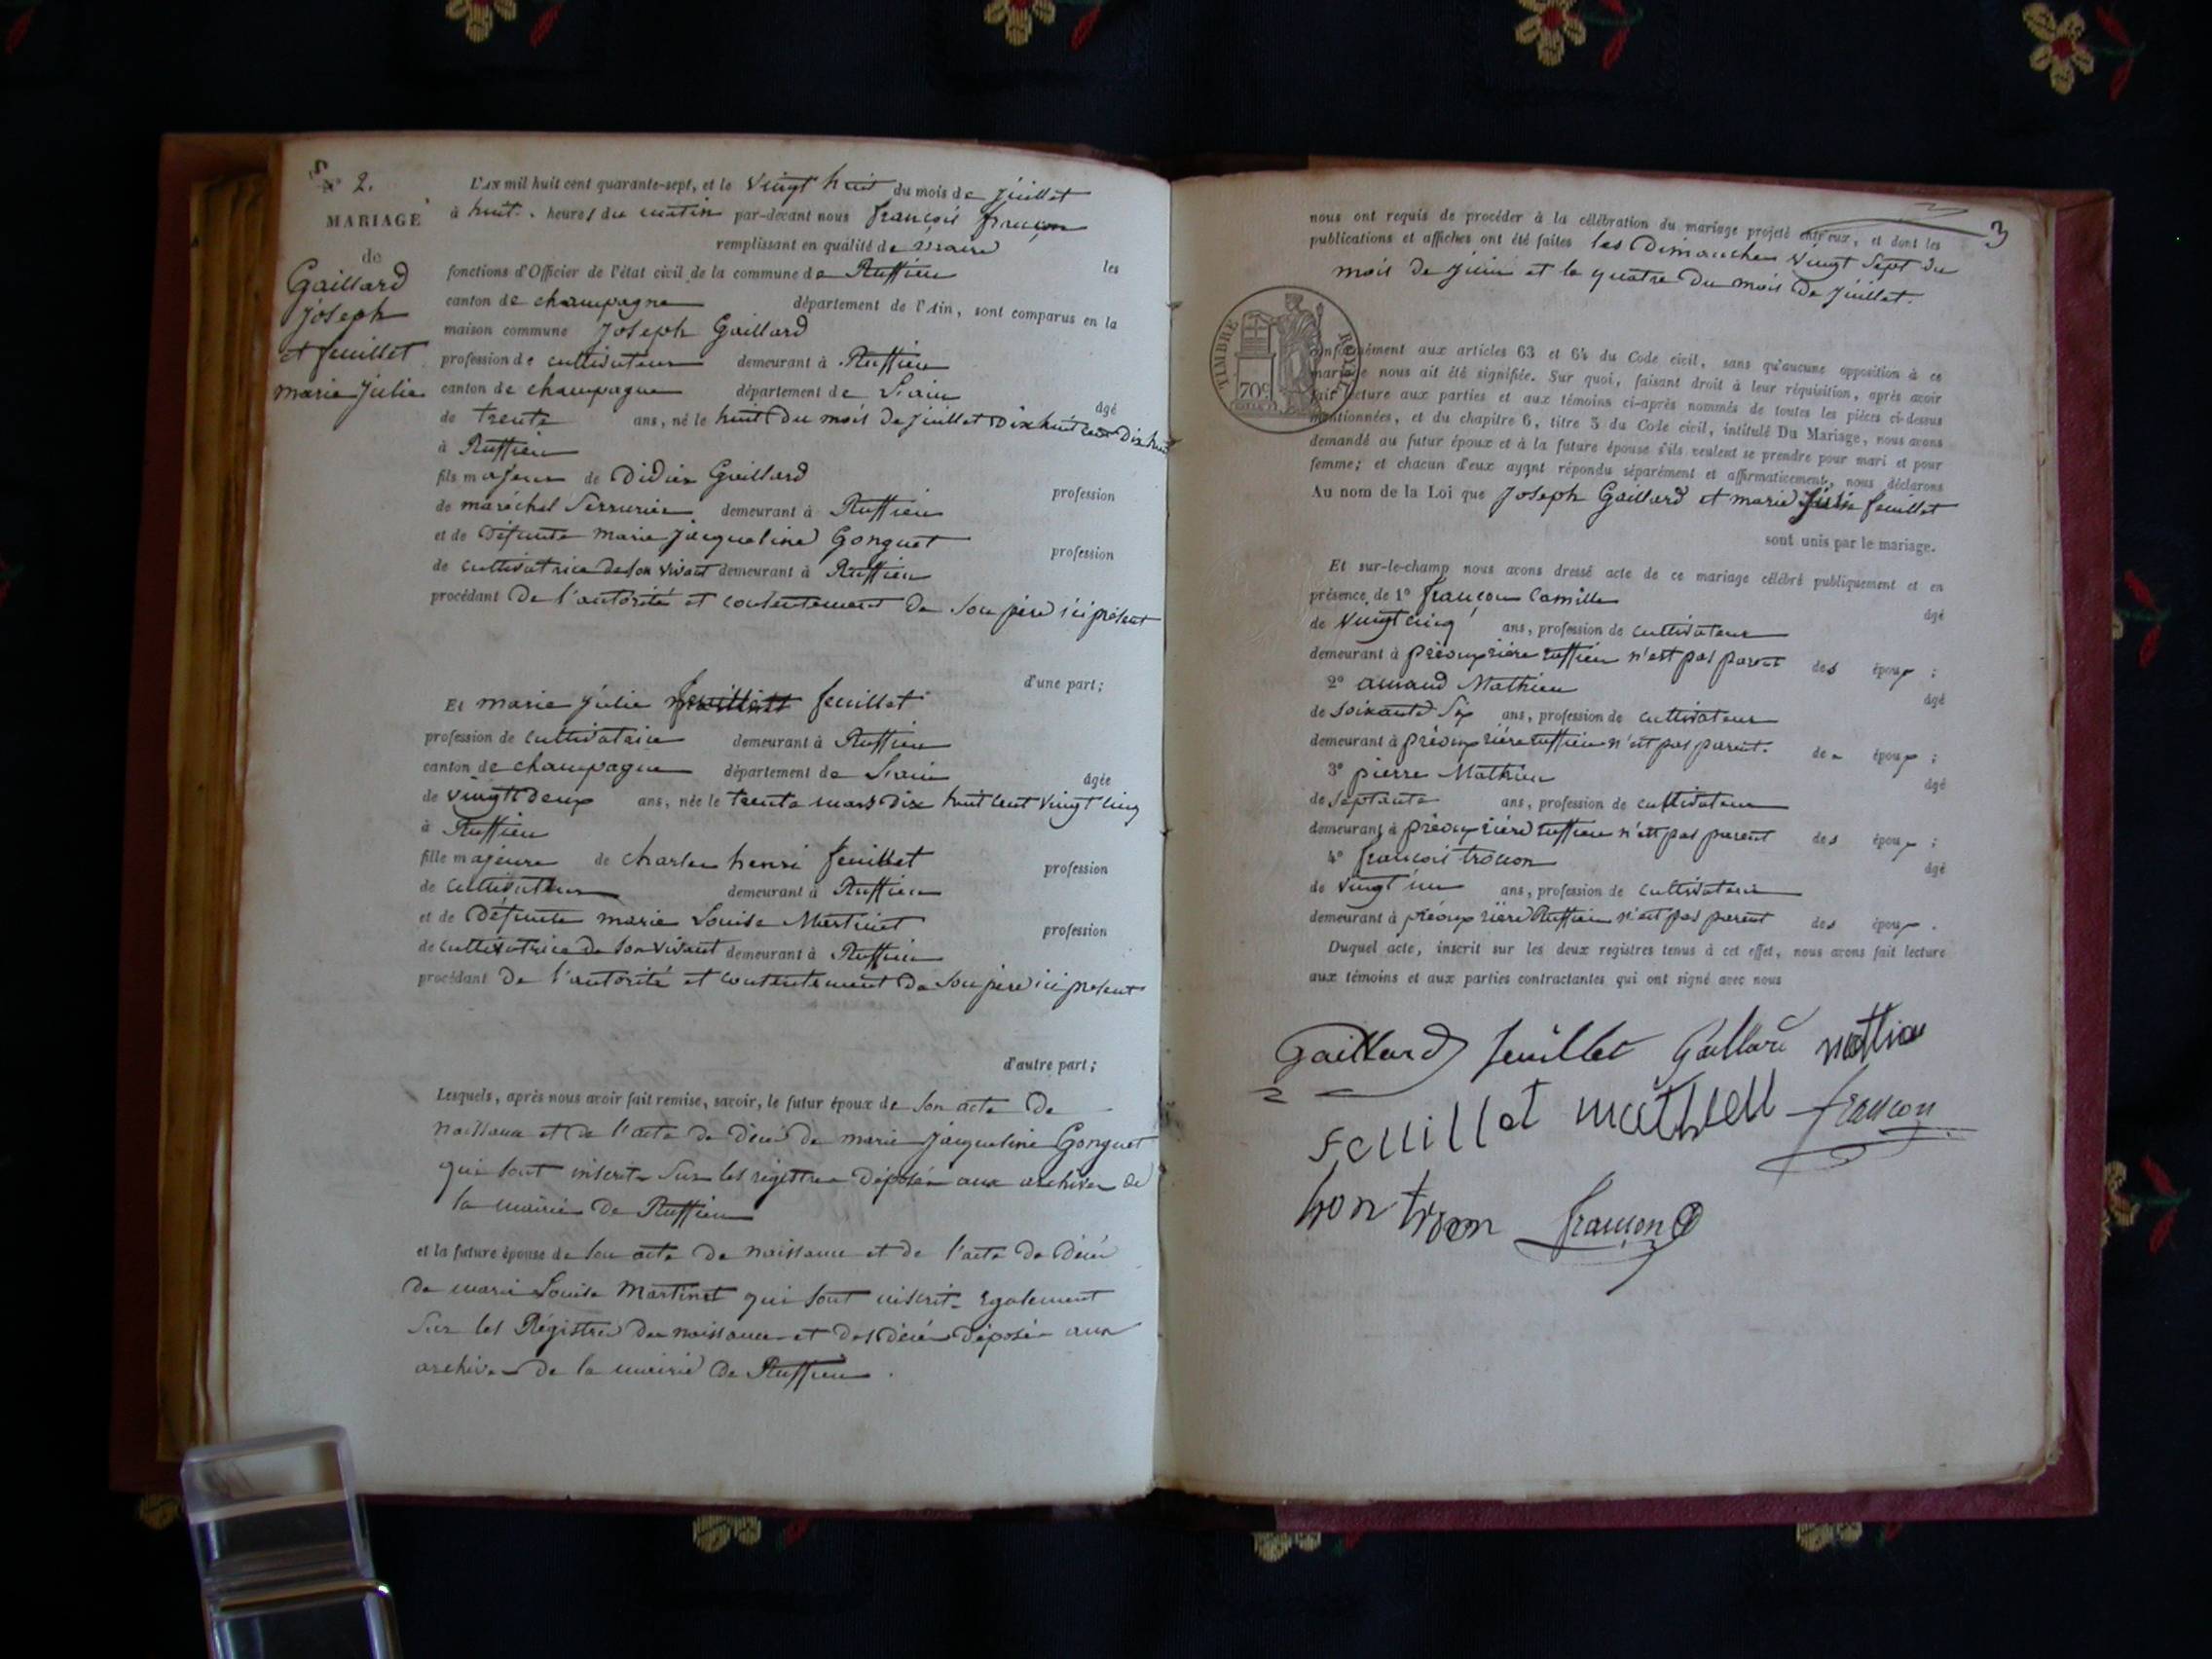 N° 2.
MARIAGE
de
Gaillard
Joseph
et feuillet
marie Julie
L'AN mil huit cent quarante-sept, et le vingt huit du mois de Juillet
à huit heures du matin par-devant nous françois françon
remplissant en qualité de maire les
fonctions d'Officier de l'état civil de la commune de Ruffieu
canton de champagne département de l'Ain, sont comparus en la
maison commune Joseph Gaillard
profession de cultivateur demeurant à Ruffieu
canton de champagne département de L'ain âgé
de trente ans, né le huit du mois de Juillet Dix huit cent Dix huit
à Ruffieu
fils majeur de Didier Gaillard profession
de maréchal Serrurier demeurant à Ruffieu
et de Défunte marie Jacqueline Gonguet profession
de cultivatrice de son vivant demeurant à Ruffieu
procédant De l'autorité et contentement de Son père ici présent
d'une part;
Et marie Julie feuillet
profession de cultivatrice demeurant à Ruffieu
canton de champagne département de L'ain âgée
de vingt deux ans, née le trente mars Dix huit cent vingt cinq
à Ruffieu
fille majeure de charles henri feuillet profession
de cultivateur demeurant à Ruffieu
et de Défunte marie Louise Martinet profession
de cultivatrice de son vivant demeurant à Ruffieu
procédant De l'autorité et contentement De Son père ici présent
d'autre part;
Lesquels, après nous avoir fait remise, savoir, le futur époux de Son acte De
naissance et de l'acte de Décé de marie Jacqueline Gonguet
qui sont inscrit Sur les régistres déposés aux archives de
la mairie de Ruffieu
et la future épouse de Son acte De naissance et de l'acte De Décé
De marie Louise Martinet qui sont inscrit Egalement
Sur les Régistres de naissance et des Décés déposés aux
archives De la mairie De Ruffieu.
3
nous ont requis de procéder à la célébration du mariage projeté entr'eux, et dont les
publications et affiches ont été faites les Dimanches vingt Sept du
mois de Juin et le quatre Du mois De Juillet.
TIMBRE ROYAL
70c
conformément aux articles 63 et 64 du Code civil, sans qu'aucune opposition à ce
mariage nous ait été signifiée. Sur quoi, faisant droit à leur réquisition, après avoir
fait lecture aux parties et aux témoins ci-après nommés de toutes les pièces ci-dessus
mentionnées, et du chapitre 6, titre 5 du Code civil, intitulé Du Mariage, nous avons
demandé au futur époux et à la future épouse s'ils veulent se prendre pour mari et pour
femme; et chacun d'eux ayant répondu séparément et affirmaticement, nous déclarons
Au nom de la Loi que Joseph Gaillard et marie Julie feuillet
sont unis par le mariage.
Et sur-le-champ nous avons dressé acte de ce mariage célébré publiquement et en
présence de 1° françon Camille âgé
de vingt cinq ans, profession de cultivateur
demeurant à Ruffieu n'est pas parent des époux;
2° amand Mathieu âgé
de Soixante Six ans, profession de cultivateur
demeurant à Ruffieu n'est pas parent. de époux;
3° pierre Mathieu âgé
de Septante ans, profession de cultivateur
demeurant à Ruffieu n'est pas parent des époux;
4° françois troccon âgé
de vingt un ans, profession de cultivateur
demeurant à Ruffieu n'est pas parent des époux.
Duquel acte, inscrit sur les deux registres tenus à cet effet, nous avons fait lecture
aux témoins et aux parties contractantes qui ont signé avec nous
Gaillard feuillet Gallard
feuillet françon
françon